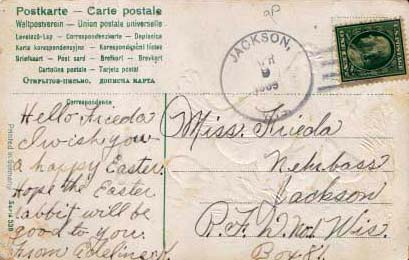 Postkarte – Carte postale
Weltpostverein – Union postale universelle
Levelező-Lap – Correspondenzkarte – Dopisnica
Karta korespondencyjna – Korespondenční lístek
Briefkaart – Post card – Brefkort – Brevkort
Cartolina postale – Tarjeta postal
Открытое-письмо. дописна карта
Correspondence
JACKSON,
APR
9
1909
Hello Frieda
I wish you
a happy Easter.
Hope the Easter
rabbit will be
good to you.
From
Miss. Frieda
Nehrbass
Jackson
R.F.D. No1 Wis.
Box 81.
Printed in Germany
Serie